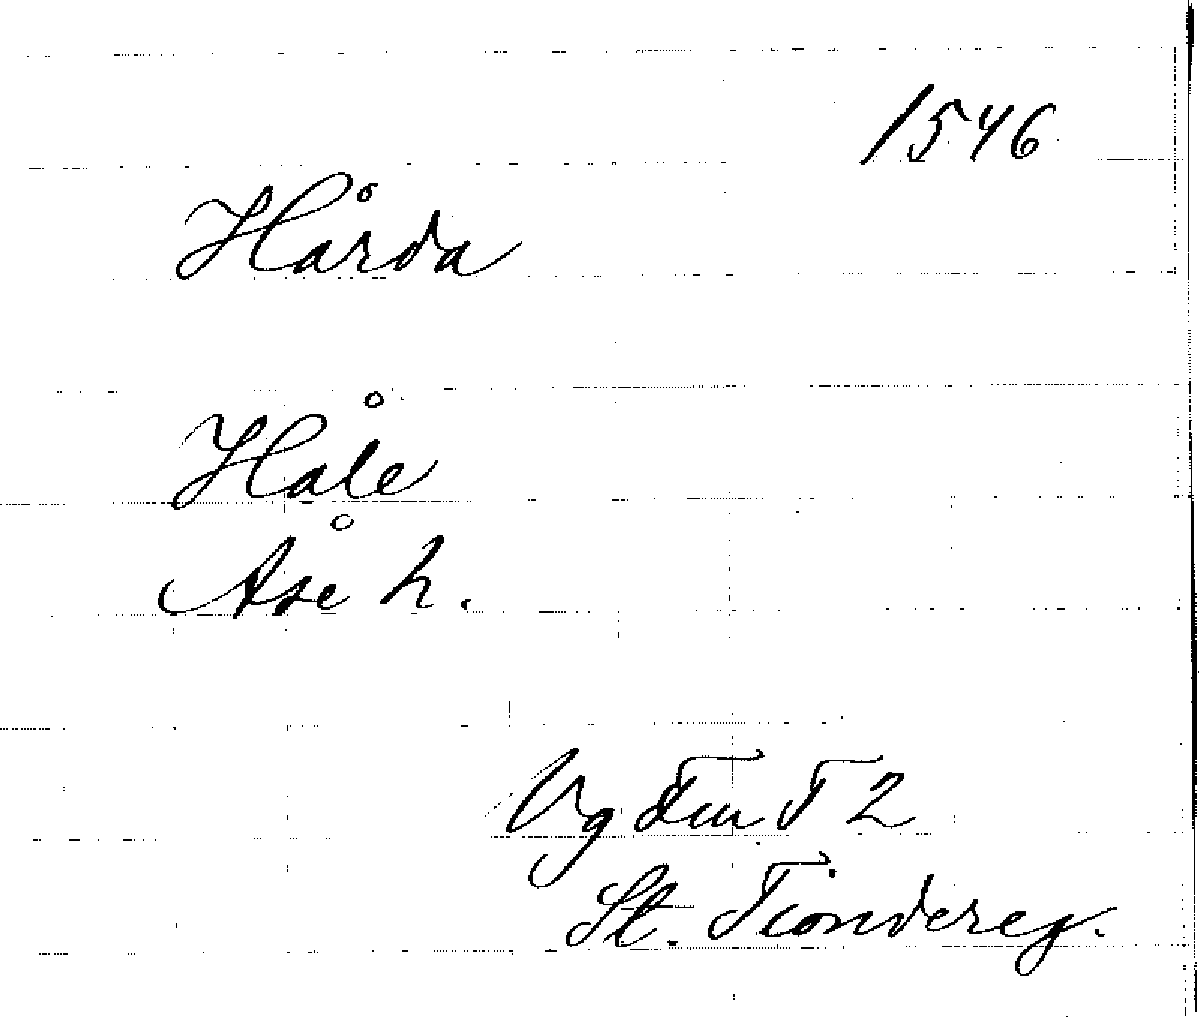 1546
Hårda
Håle
Åse h.
Vg Tiu T 2
St. Tiondereg.